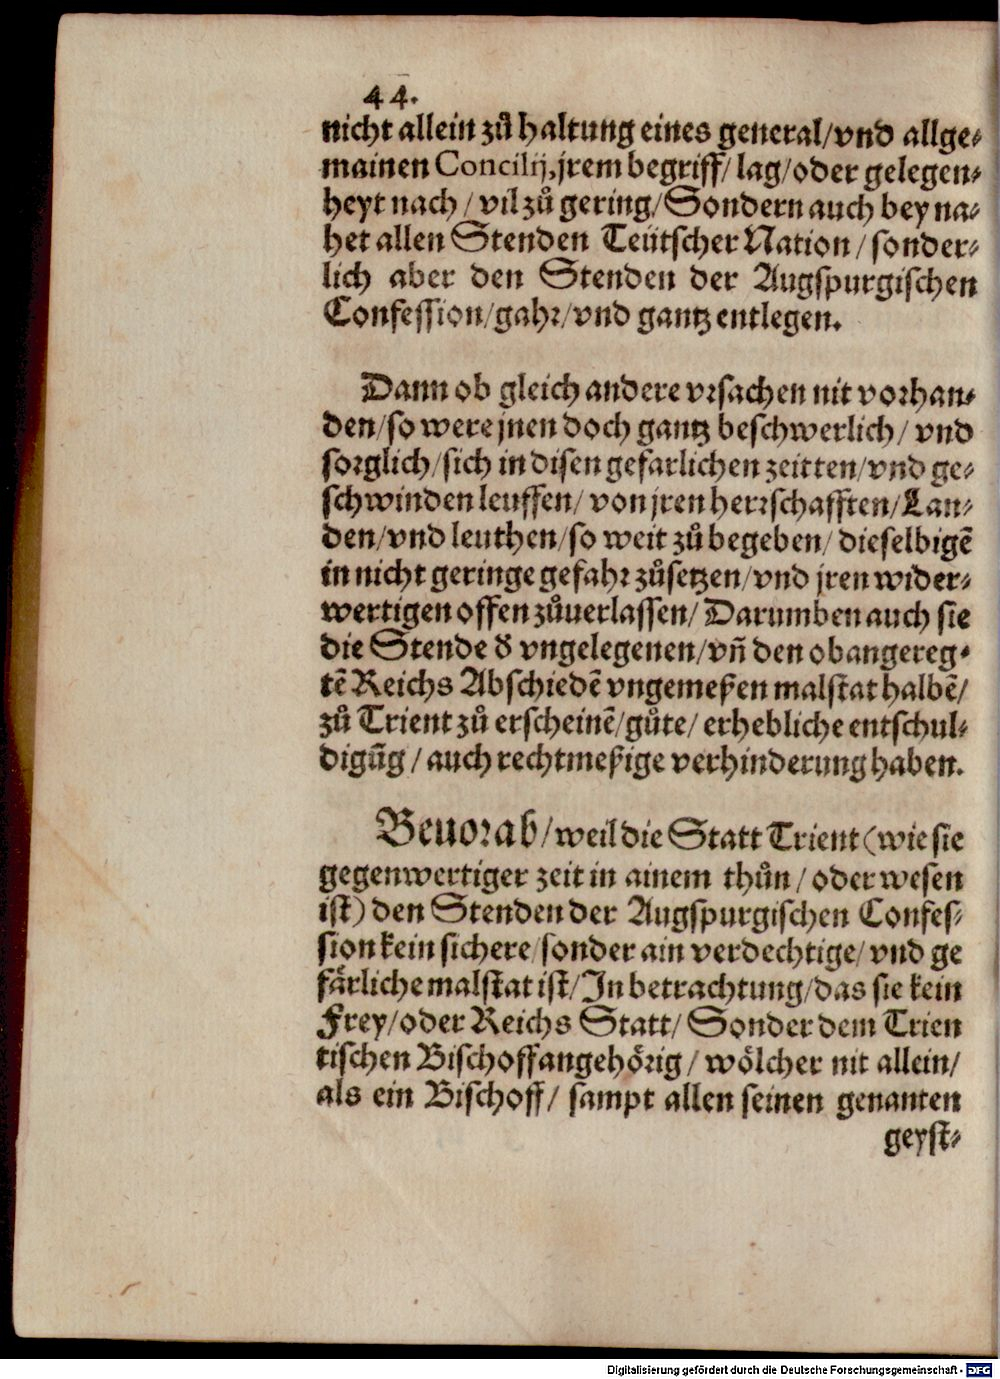 44.
nicht allein zů haltung eines general/vnd allge⸗
mainen Concilij, jrem begriff/ lag/oder gelegen⸗
heyt nach / vil zů gering/Sondern auch bey na⸗
het allen Stenden Teütscher Nation / sonder⸗
lich aber den Stenden der Augspurgischen
Confession/gahr/vnd gantz entlegen.
Dann ob gleich andere vrsachen nit vorhan⸗
den/so were jnen doch gantz beschwerlich/ vnd
sorglich/sich in disen gefarlichen zeitten/vnd ge⸗
schwinden leuffen/ von jren herrschafften/Lan⸗
den/vnd leuthen/so weit zů begeben/ dieselbigē
in nicht geringe gefahr zůsetzen/vnd jren wider⸗
wertigen offen zůuerlassen/ Darumben auch sie
die Stende d̕ vngelegenen/vñ den obangereg⸗
tē Reichs Abschiedē vngemeßen malstat halbē/
zů Trient zů erscheinē/gůte/ erhebliche entschul⸗
digūg / auch rechtmeßige verhinderung haben.
Beuorab/weil die Statt Trient (wie sie
gegenwertiger zeit in ainem thůn / oder wesen
ist) den Stenden der Augspurgischen Confes⸗
sion kein sichere/sonder ain verdechtige/ vnd ge
färliche malstat ist/In betrachtung/das sie kein
Frey/oder Reichs Statt/ Sonder dem Trien
tischen Bischoff angehörig / wölcher nit allein/
als ein Bischoff/ sampt allen seinen genanten
geyst⸗
Digitalisierung gefördert durch die Deutsche Forschungsgemeinschaft - DFG